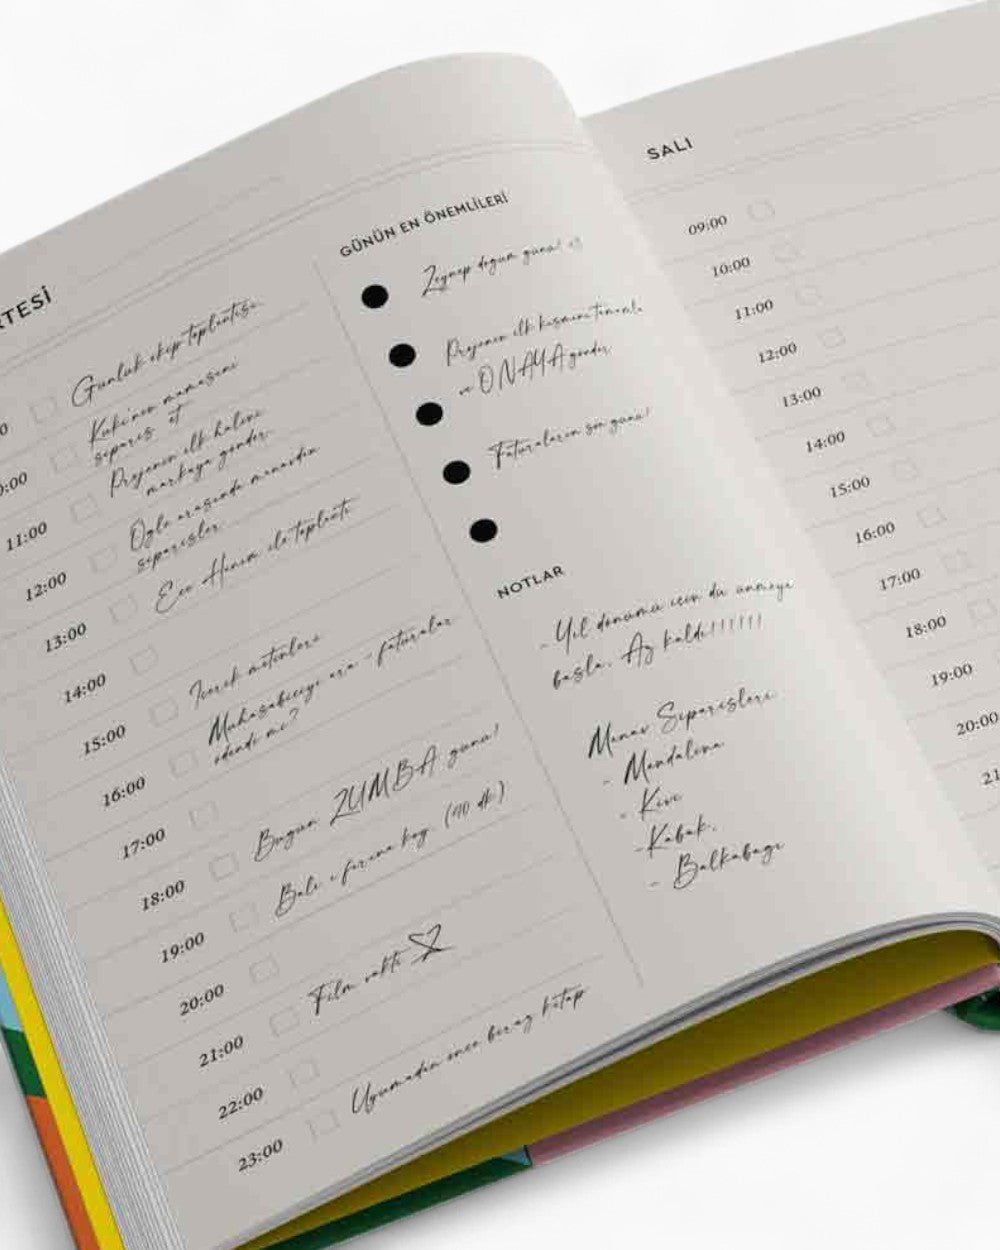 RTESİ
Günlük ekip toplantısı
:00
Kuki'nin mamasını
sipariş et
11:00
Projenin ilk halini
markaya gönder.
12:00
Öğle arasında manavdan
siparişler
13:00
Ece Hanım ile toplantı
14:00
15:00
İçerik metinleri
16:00
Muhasebeciyi ara - faturalar
ödendi mi?
17:00
18:00
Bugün ZUMBA günü!
19:00
Balı fırına koy (40 dk)
20:00
21:00
Film vakti
22:00
23:00
Uyumadan önce biraz kitap
GÜNÜN EN ÖNEMLİLERİ
Zeynep doğum günü!
Projenin ilk kısmını tamamla
ve ONAYA gönder
Faturaların son günü!
NOTLAR
- Yıl dönümü için düşünmeye
başla. Az kaldı!!!!!!!
Manav Siparişleri
- Mandalina
- Kivi
- Kabak.
- Balkabağı
SALI
09:00
10:00
11:00
12:00
13:00
14:00
15:00
16:00
17:00
18:00
19:00
20:00
21